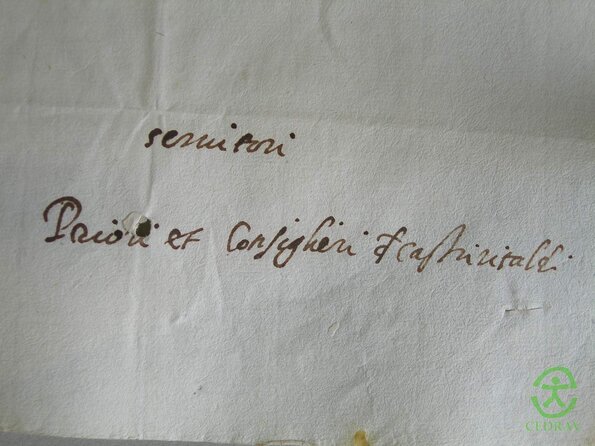 seruitori
Priori et Consiglieri di Castriritaldi
CEDRAV